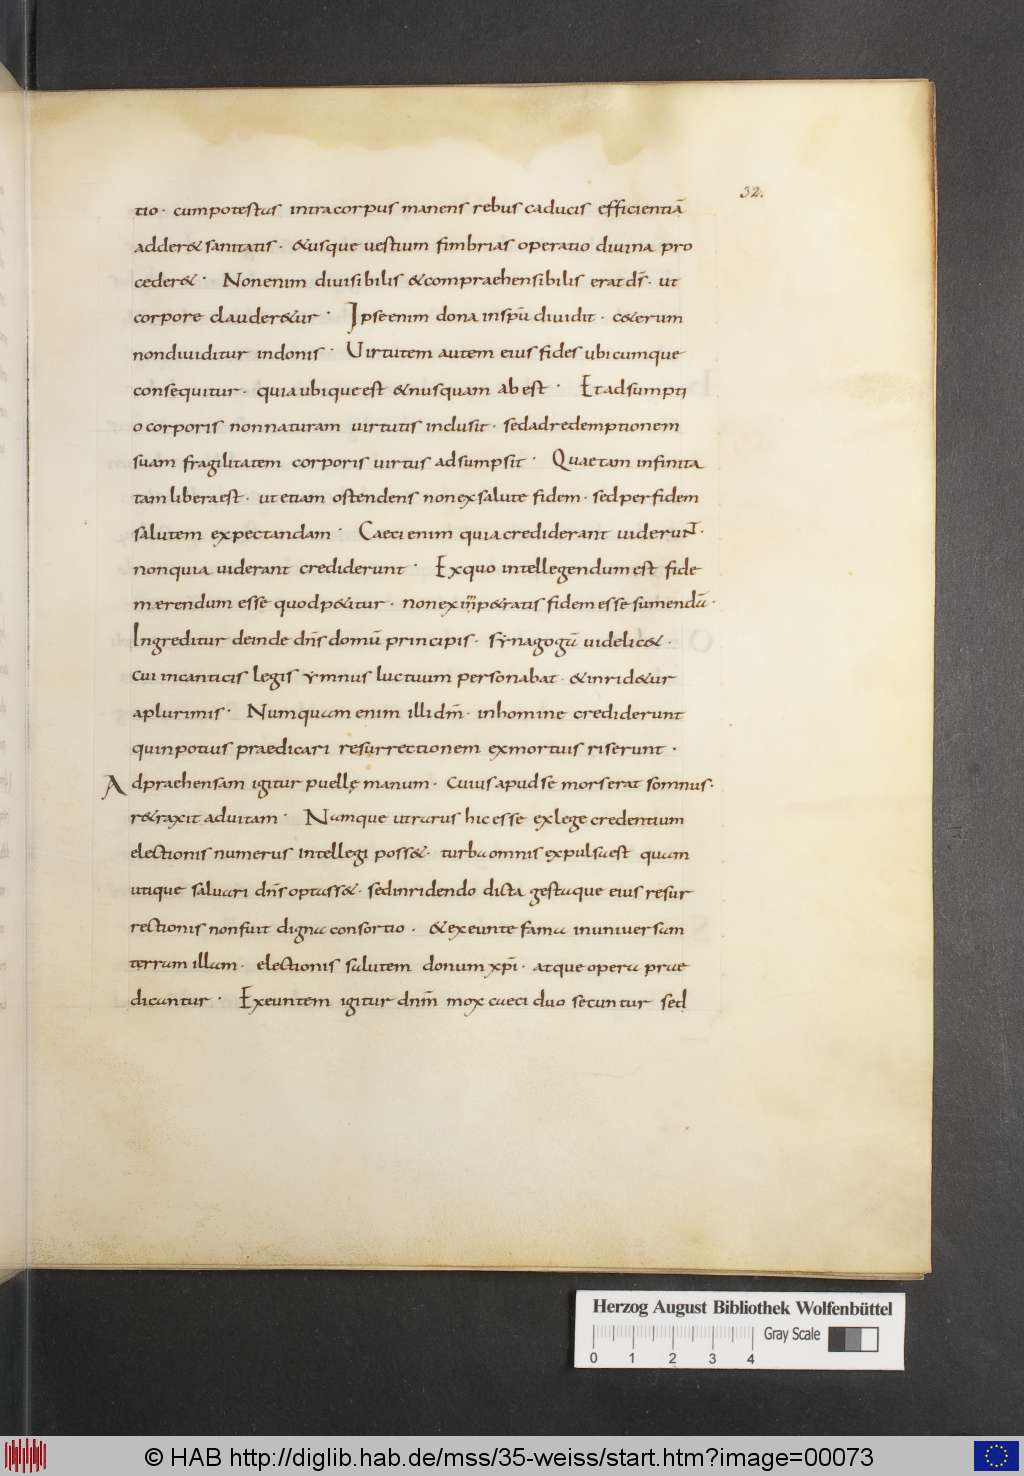 32.
tio· cum potestas intra corpus manens rebus caducis efficientiā
adder& sanitatis· &usque uestium fimbrias operatio diuina pro
ceder&· Non enim diuisibilis &compraehensibilis erat dr̄· ut
corpore clauder&ur· Ipse enim dona in spū diuidit· c&erum
non diuiditur in donis· Uirtutem autem eius fides ubicumque
consequitur· quia ubique est &nusquam ab est· Et adsumpti
o corporis non naturam uirtutis inclusit· sed ad redemptionem
suam fragilitatem corporis uirtus adsumpsit· Quae tam infinita
tam libera est· ut etiam ostendens non ex salute fidem· sed per fidem
salutem expectandam· Caeci enim quia crediderant uiderunt·
non quia uiderant crediderunt· Ex quo intellegendum est fide
merendum esse quod p&itur· non ex imp&ratis fidem esse sumendā·
Ingreditur deinde dn̄s domū principis· sẏnagogū uidelic&·
cui in canticis legis ẏmnus luctuum personabat· &inrid&ur
a plurimis· Numquam enim illi dm̄· in homine crediderunt
quin potius praedicari resurrectionem ex mortuis riserunt·
Adpraehensam igitur puellę manum· cuius apud se mors erat somnus·
r&raxit ad uitam· Namque ut rarus hic esse ex lege credentium
electionis numerus intellegi poss&· turba omnis expulsa est quam
utique saluari dn̄s optass&· sed inridendo dicta gestaque eius resur
rectionis non fuit digna consortio· &exeunte fama in uniuersam
terram illam· electionis salutem donum xp̄i· atque opera prae
dicantur· Exeuntem igitur dnm̄ mox caeci duo secuntur sed
Herzog August Bibliothek Wolfenbüttel
Gray Scale
0 1 2 3 4
© HAB http://diglib.hab.de/mss/35-weiss/start.htm?image=00073